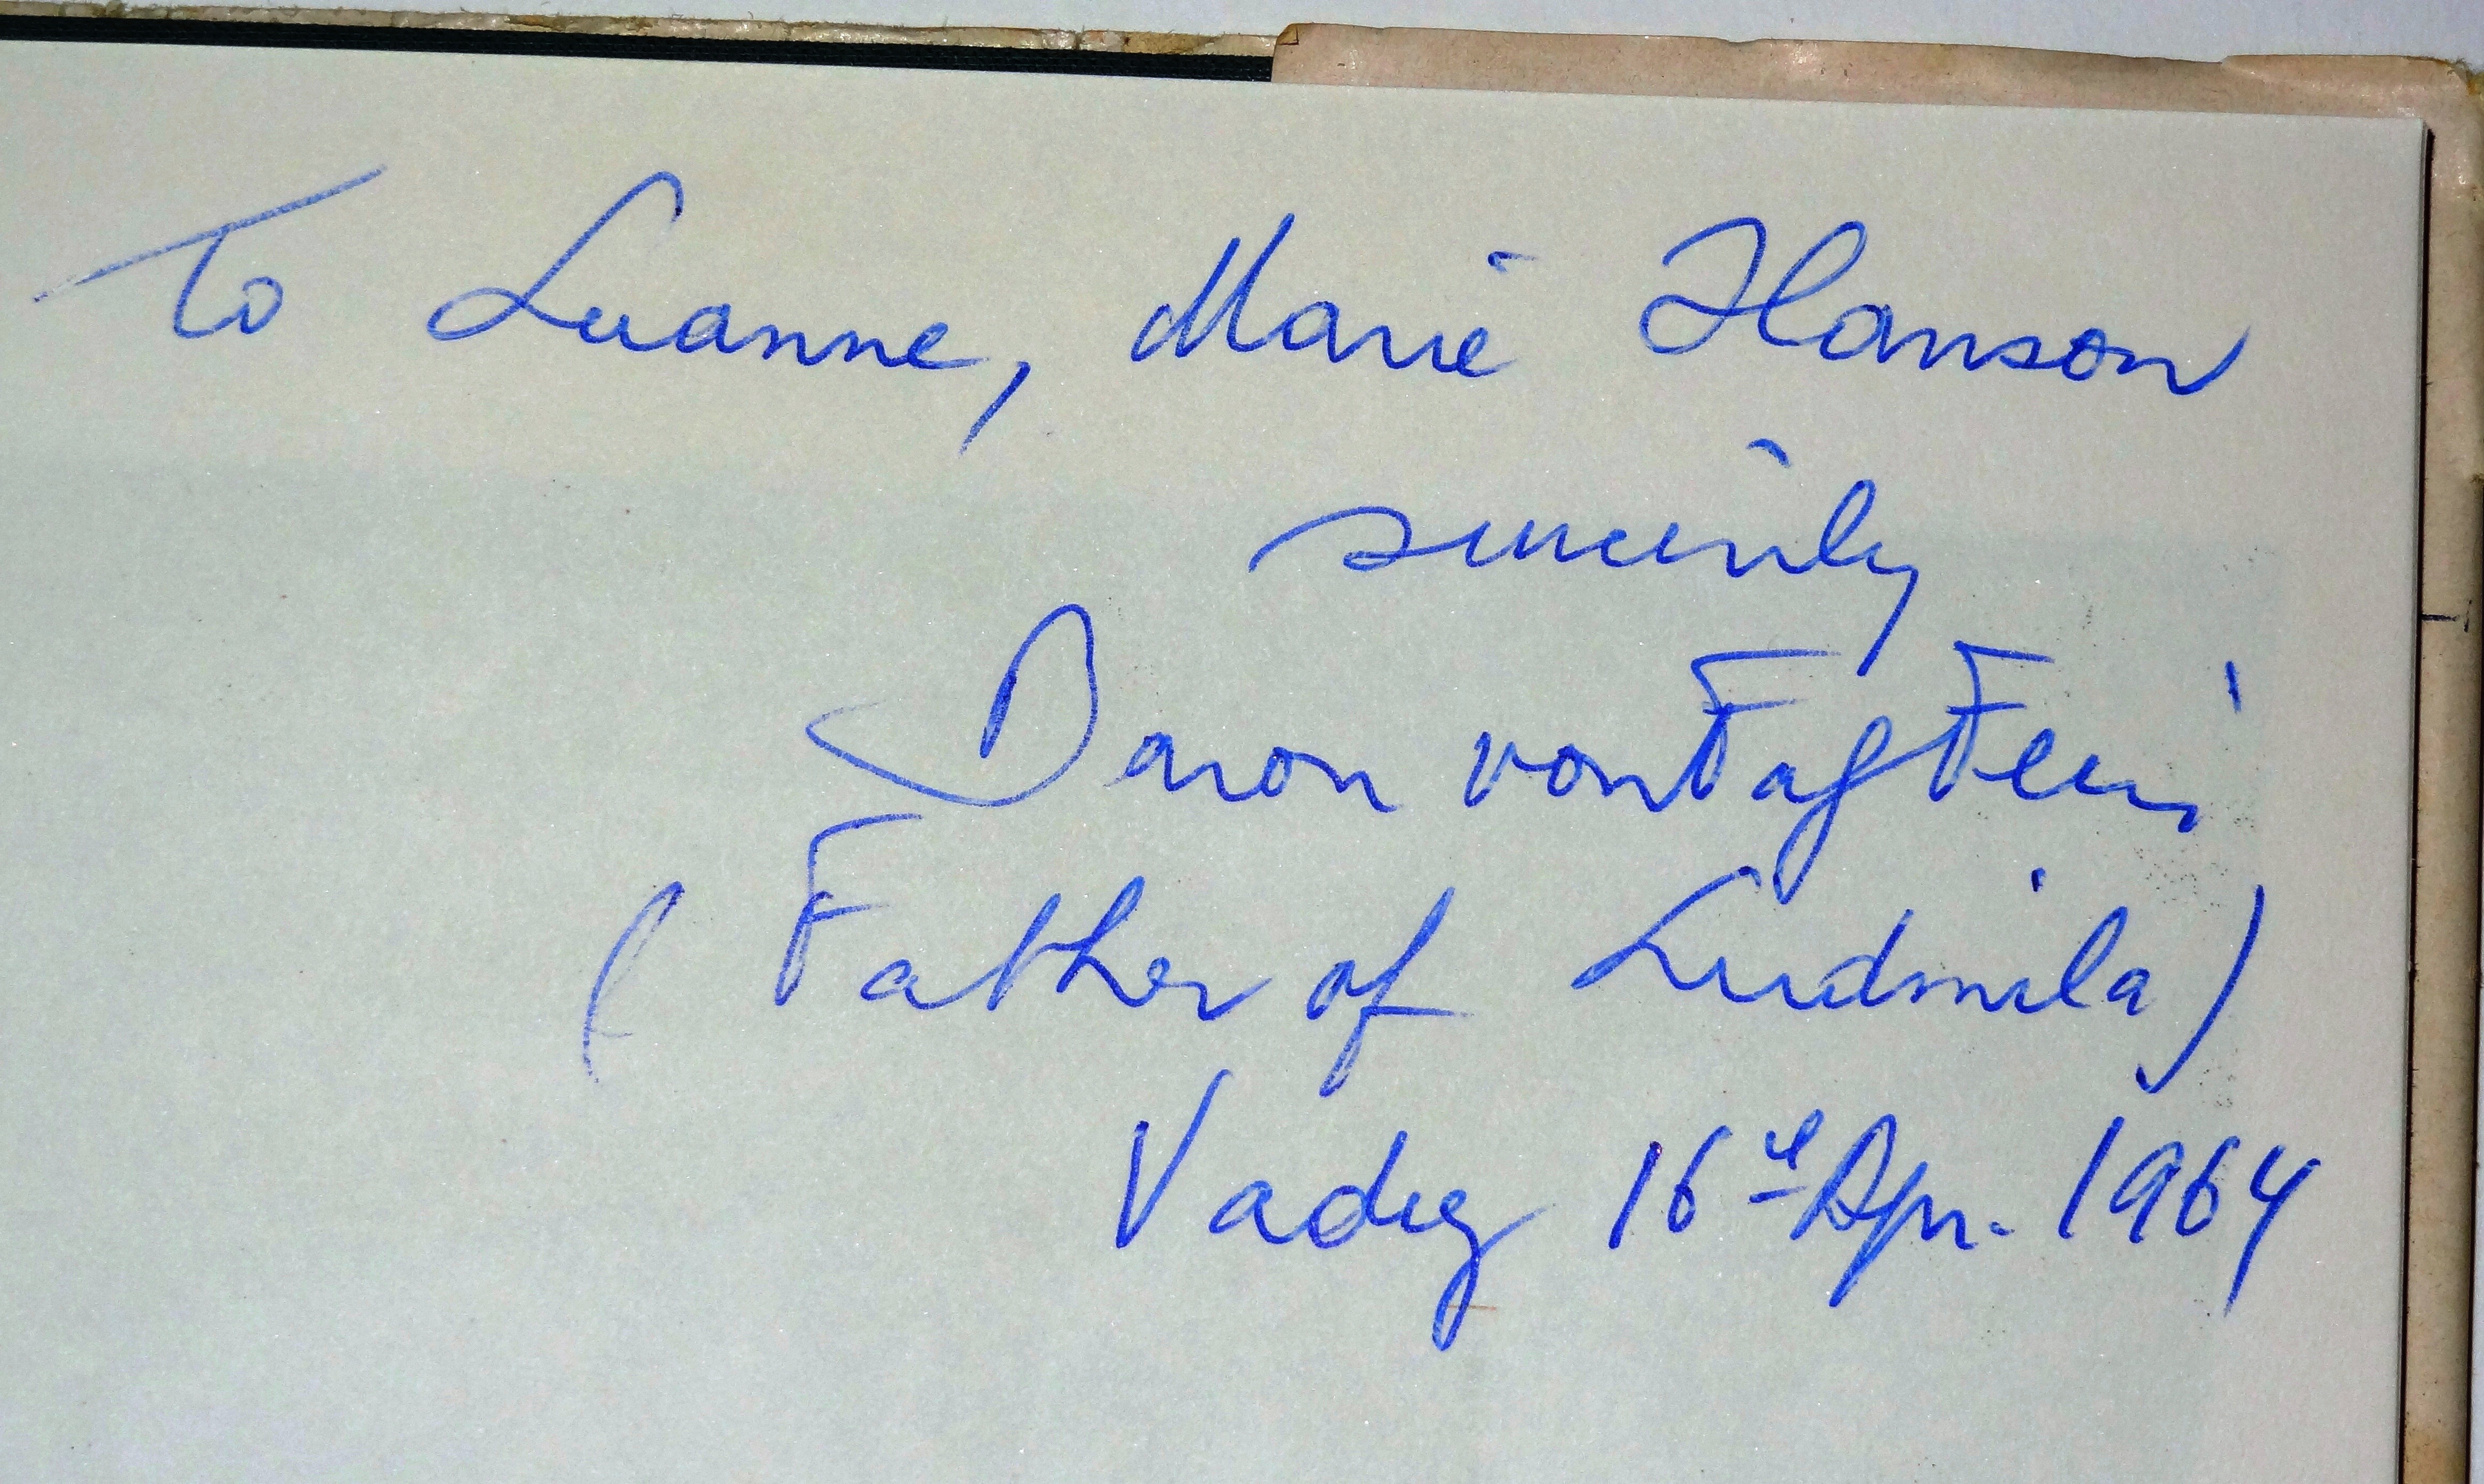 To Luanne, Marie Hanson
sincerely
Baron von Falz Fein
(Father of Ludmila)
Vaduz 16th Apr. 1964